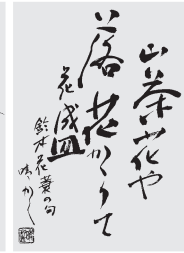 山茶花や
落花かゝりて
花盛
鈴木花蓑の句